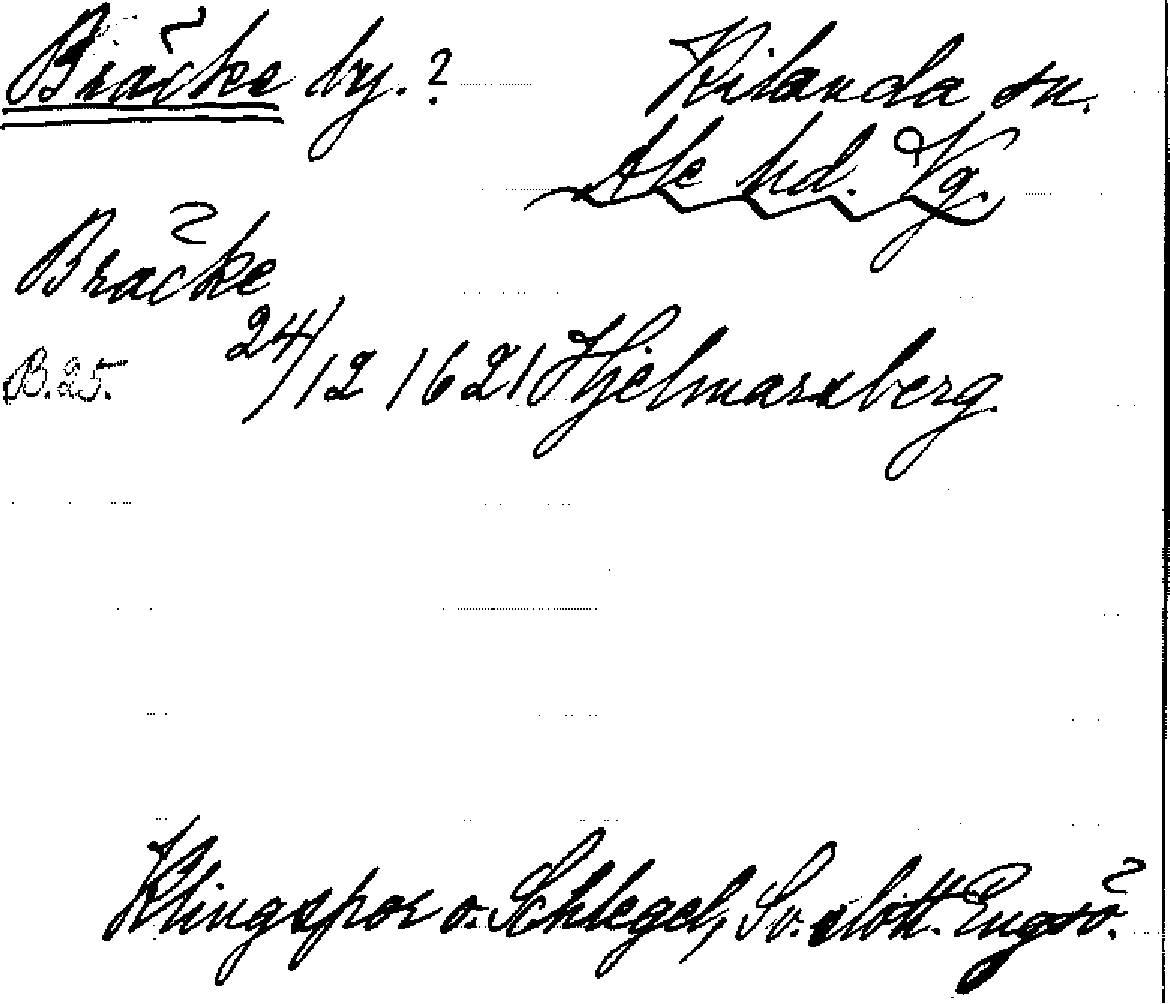 Bräcke by. ?
Kilanda sn.
Ale hd. Vg.
Bräcke
B. 25. 24/12 1621 Hjelmarsberg.
Klingspor o. Schlegel, Sv. slott. Engsö.